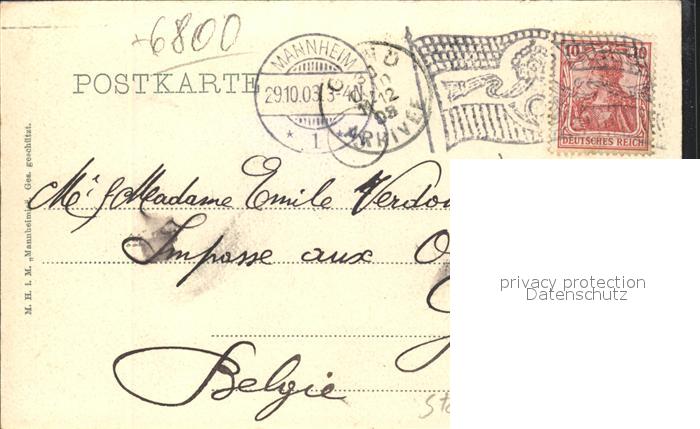 +6800
POSTKARTE
MANNHEIM
29.10.03. 3-4N
* 1 *
ARRIVÉE
10 10
DEUTSCHES REICH
M. H. i. M. „Mannheimia“ Ges. geschützt.
Mr & Madame Emile Verdon
Impasse aux O
G
Belgie
privacy protection
Datenschutz